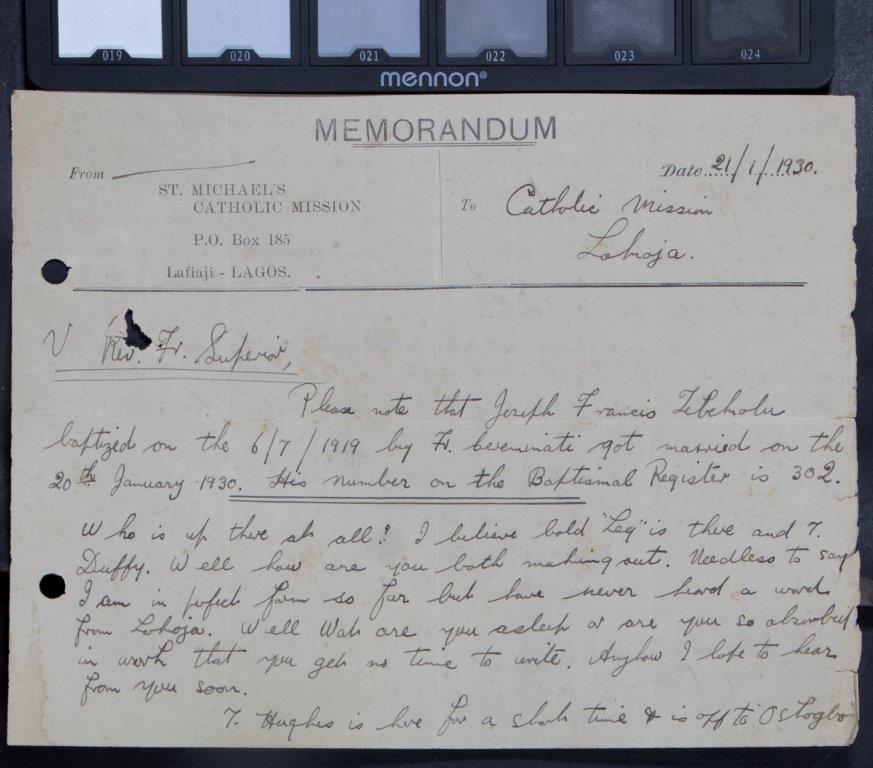 019 020 021 022 023 024
mennon®
MEMORANDUM
From
Date 21/1/1930.
ST. MICHAEL'S
CATHOLIC MISSION
P.O. Box 185
Lafiaji - LAGOS.
To Catholic Mission
Lokoja.
V Rev. Fr. Superior,
Please note that Joseph Francis
baptized on the 6/7/1919 by Fr. got married on the
20th January 1930. His number on the Baptismal Register is 302.
Who is up there at all? I believe bold "Leg" is there and T.
Duffy. Well how are you both making out. Needless to say
I am in perfect form so far but have never heard a word
from Lokoja. Well Wat are you asleep or are you so absorbed
in work that you get no time to write. Anyhow I hope to hear
from you soon.
T. Hughes is here for a short time & is off to Oshogbo